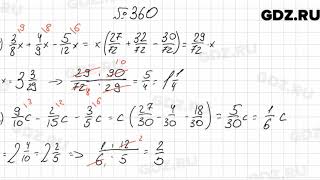 GDZ.RU
№360
) 3/8 x + 4/9 x - 5/12 x = x(27/72 + 32/72 - 30/72) = 29/72 x
x = 3 3/29 → 29 · 90 / 72 · 29 = 5/4 = 1 1/4
) 9/10 c - 2/15 c - 3/5 c = c(27/30 - 4/30 - 18/30) = 5/30 c = 1/6 c
= 2 4/10 = 2 2/5 => 1 · 12 / 6 · 5 = 2/5